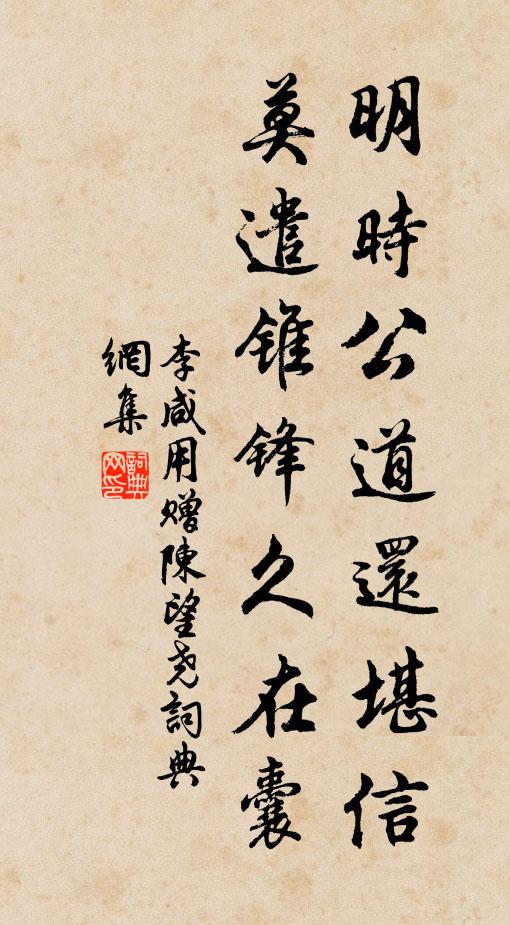 明時公道還堪信
莫遣錐鋒久在囊
李咸用贈陳望堯詞典
網集
詞典網印